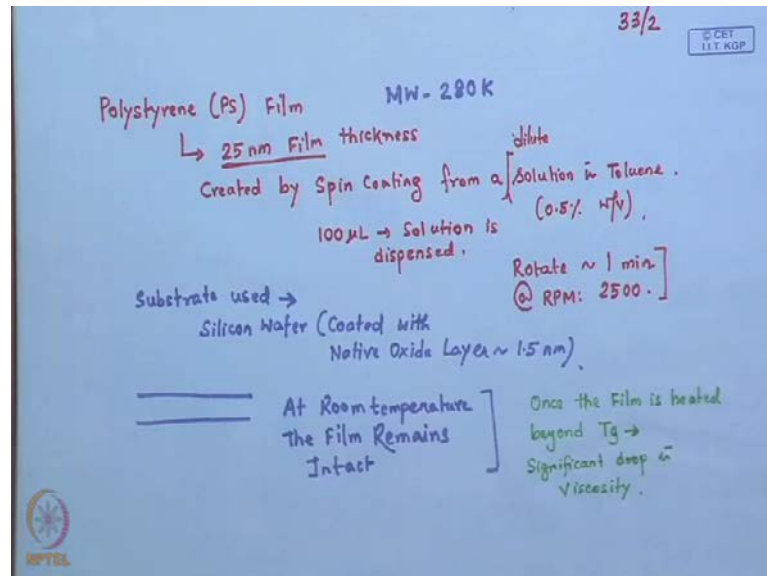 33/2
© CET
I.I.T. KGP
Polystyrene (PS) Film MW - 280K
↳ 25 nm Film thickness
Created by Spin Coating from a dilute Solution in Toluene.
(0.5% w/v).
100 μL → Solution is
dispensed.
Rotate ~ 1 min
@ RPM: 2500.
Substrate used →
Silicon Wafer (Coated with
Native Oxide Layer ~ 1.5 nm).
At Room temperature
the Film Remains
Intact
Once the Film is heated
beyond Tg →
Significant drop in
Viscosity.
NPTEL